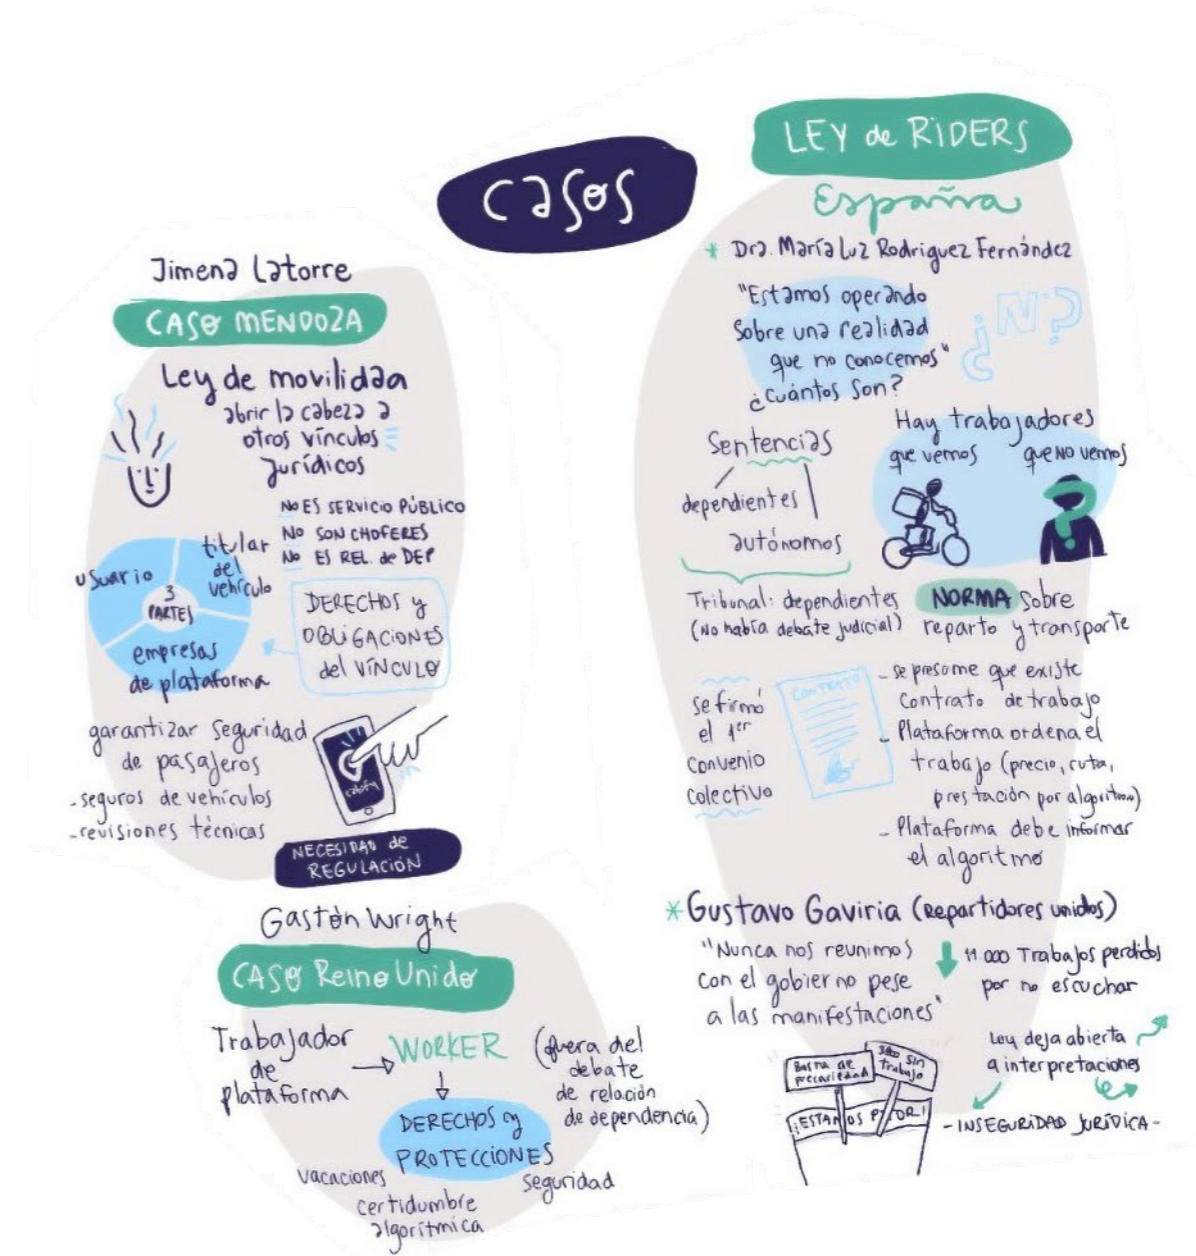 Casos
Jimena Latorre
CASO MENDOZA
Ley de movilidad
abrir la cabeza a
otros vínculos
Jurídicos
No ES SERVICIO PÚBLICO
No SON CHOFERES
No ES REL. de DEP
usuario
titular
del
vehículo
3
PARTES
empresas
de plataforma
DERECHOS y
OBLIGACIONES
del VÍNCULO
garantizar seguridad
de pasajeros
- seguros de vehículos
- revisiones técnicas
cabify
NECESIDAD de
REGULACIÓN
Gastón Wright
CASO Reino Unido
Trabajador
de
plataforma
WORKER
(fuera del
debate
de relación
de dependencia)
DERECHOS y
PROTECCIONES
vacaciones
certidumbre
algorítmica
seguridad
LEY de RiDERS
España
* Dra. María Luz Rodriguez Fernández
"Estamos operando
sobre una realidad
que no conocemos"
¿Cuántos son?
¿N°?
Sentencias
dependientes
autónomos
Hay trabajadores
que vemos
que NO vemos
?
Tribunal: dependientes
(No había debate judicial)
NORMA sobre
reparto y transporte
se firmó
el 1er
convenio
colectivo
CONTRATO
- se presume que existe
contrato de trabajo
- Plataforma ordena el
trabajo (precio, ruta,
prestación por algoritmo)
- Plataforma debe informar
el algoritmo
* Gustavo Gaviria (Repartidores unidos)
"Nunca nos reunimos
con el gobierno pese
a las manifestaciones"
11.000 Trabajos perdidos
por no escuchar
Ley deja abierta
a interpretaciones
- INSEGURIDAD JURÍDICA -
Basta de
precariedad
sin
trabajo
¡ESTAMOS PEOR!